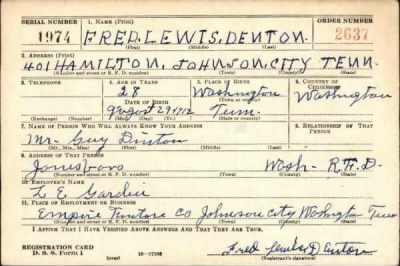 SERIAL NUMBER 1. NAME (Print) ORDER NUMBER
1974 FRED. LEWIS. DENTON. 2637
(First) (Middle) (Last)
2. ADDRESS (Print)
401 HAMILTON. JOHNSON. CITY TENN.
(Number and street or R. F. D. number) (Town) (County) (State)
3. TELEPHONE 4. AGE IN YEARS 5. PLACE OF BIRTH 6. COUNTRY OF CITIZENSHIP
28 Washington Washington
DATE OF BIRTH (Town or county)
29 1912 Tenn.
(Exchange) (Number) (Mo.) (Day) (Yr.) (State or country)
7. NAME OF PERSON WHO WILL ALWAYS KNOW YOUR ADDRESS 8. RELATIONSHIP OF THAT PERSON
Mr. Guy Denton
(Mr., Mrs., Miss) (First) (Middle) (Last)
9. ADDRESS OF THAT PERSON
Jonesboro Wash- R.F.D-
(Number and street or R. F. D. number) (Town) (County) (State)
10. EMPLOYER'S NAME
L E
11. PLACE OF EMPLOYMENT OR BUSINESS
Empire Co Johnson City Tenn
(Number and street or R. F. D. number) (Town) (County) (State)
I AFFIRM THAT I HAVE VERIFIED ABOVE ANSWERS AND THAT THEY ARE TRUE.
REGISTRATION CARD
D. S. S. Form 1 (over) Fred Lewis Denton
(Registrant's signature)